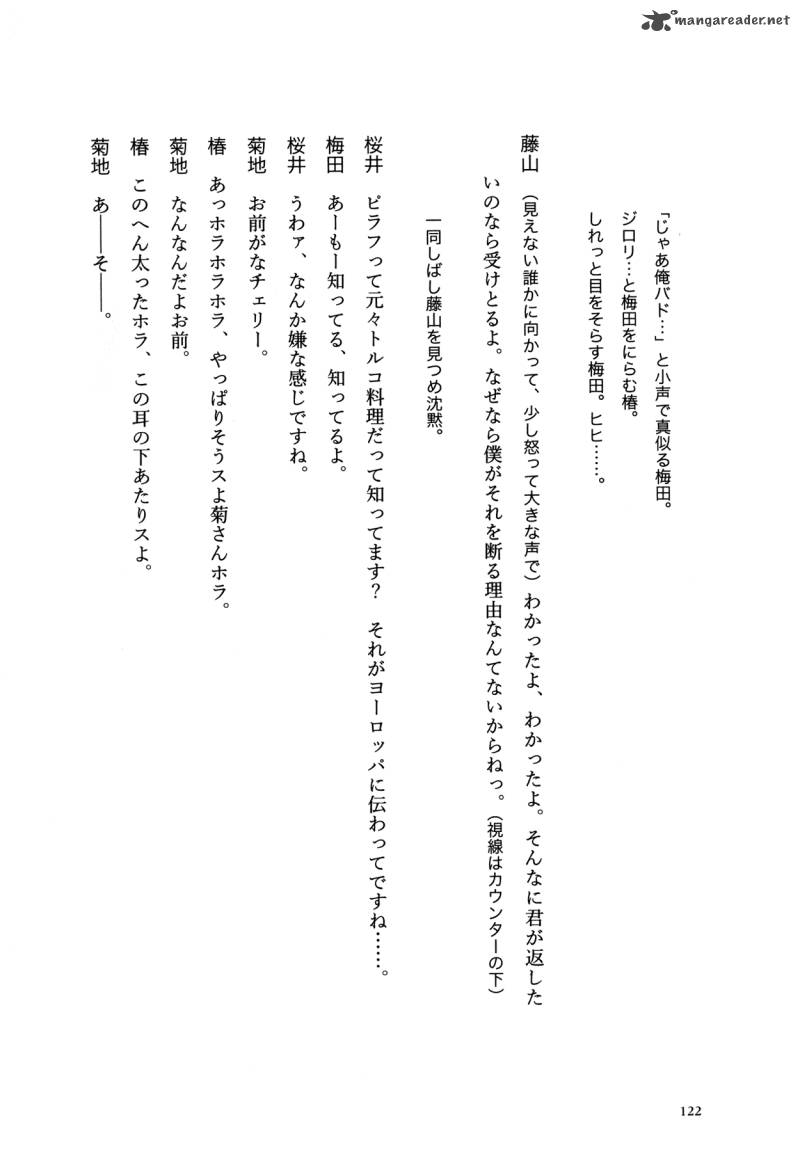 mangareader.net
「じゃあ俺バド…」と小声で真似る梅田。
ジロリ…と梅田をにらむ椿。
しれっと目をそらす梅田。ヒヒ……。
藤山　（見えない誰かに向かって、少し怒って大きな声で）わかったよ、わかったよ。そんなに君が返した
いのなら受けとるよ。なぜなら僕がそれを断る理由なんてないからねっ。（視線はカウンターの下）
一同しばし藤山を見つめ沈黙。
桜井　ピラフって元々トルコ料理だって知ってます？　それがヨーロッパに伝わってですね……。
梅田　あーもー知ってる、知ってるよ。
桜井　うわァ、なんか嫌な感じですね。
菊地　お前がなチェリー。
椿　あっホラホラホラ、やっぱりそうスよ菊さんホラ。
菊地　なんなんだよお前。
椿　このへん太ったホラ、この耳の下あたりスよ。
菊地　あ――そ――。
122